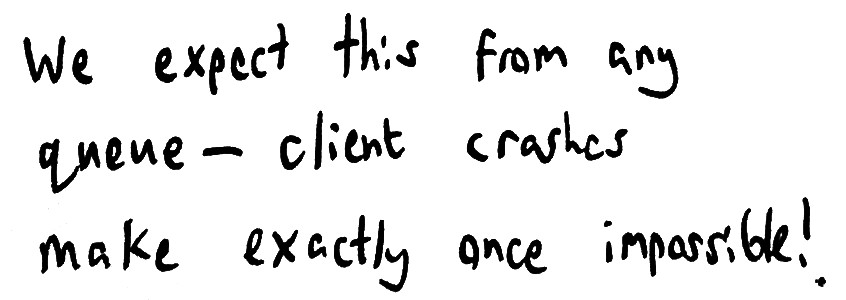 We expect this from any
queue – client crashes
make exactly once impossible!